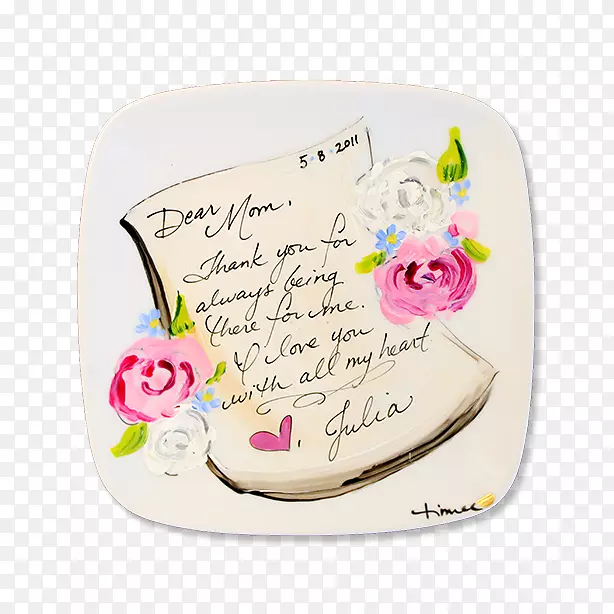 5·8·2011
Dear Mom,
Thank you for
always being
there for me.
I love you
with all my heart
Julia